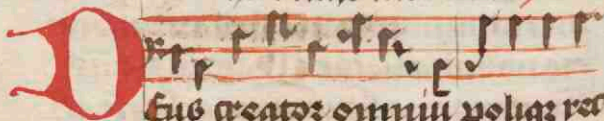 Deus creator omniū poliq₃ rec